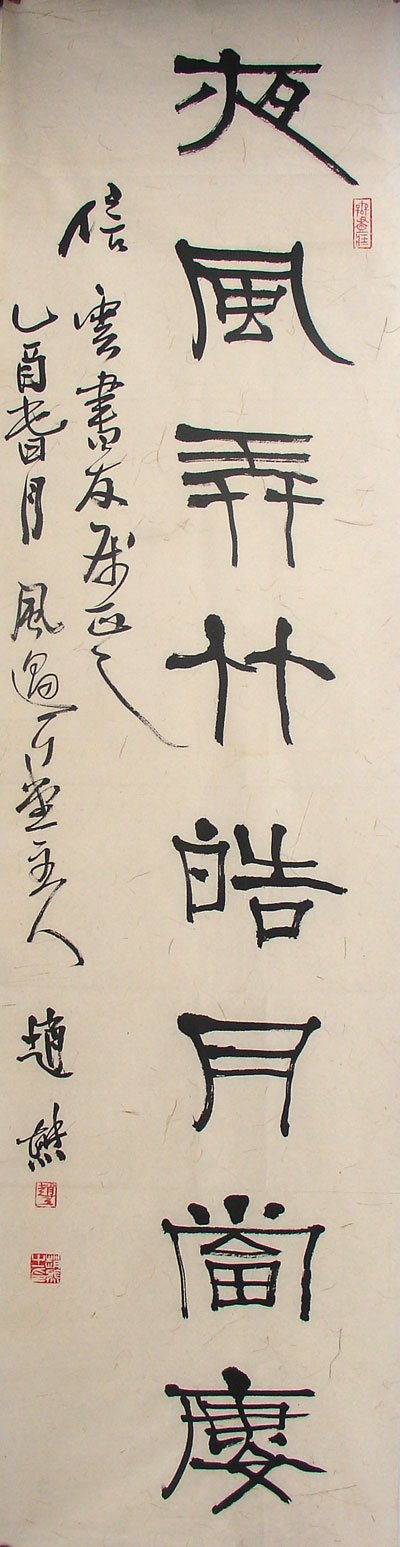 夜風弄竹皓月當廈
信雲書友屬正之
乙酉月風過耳堂主人趙熊